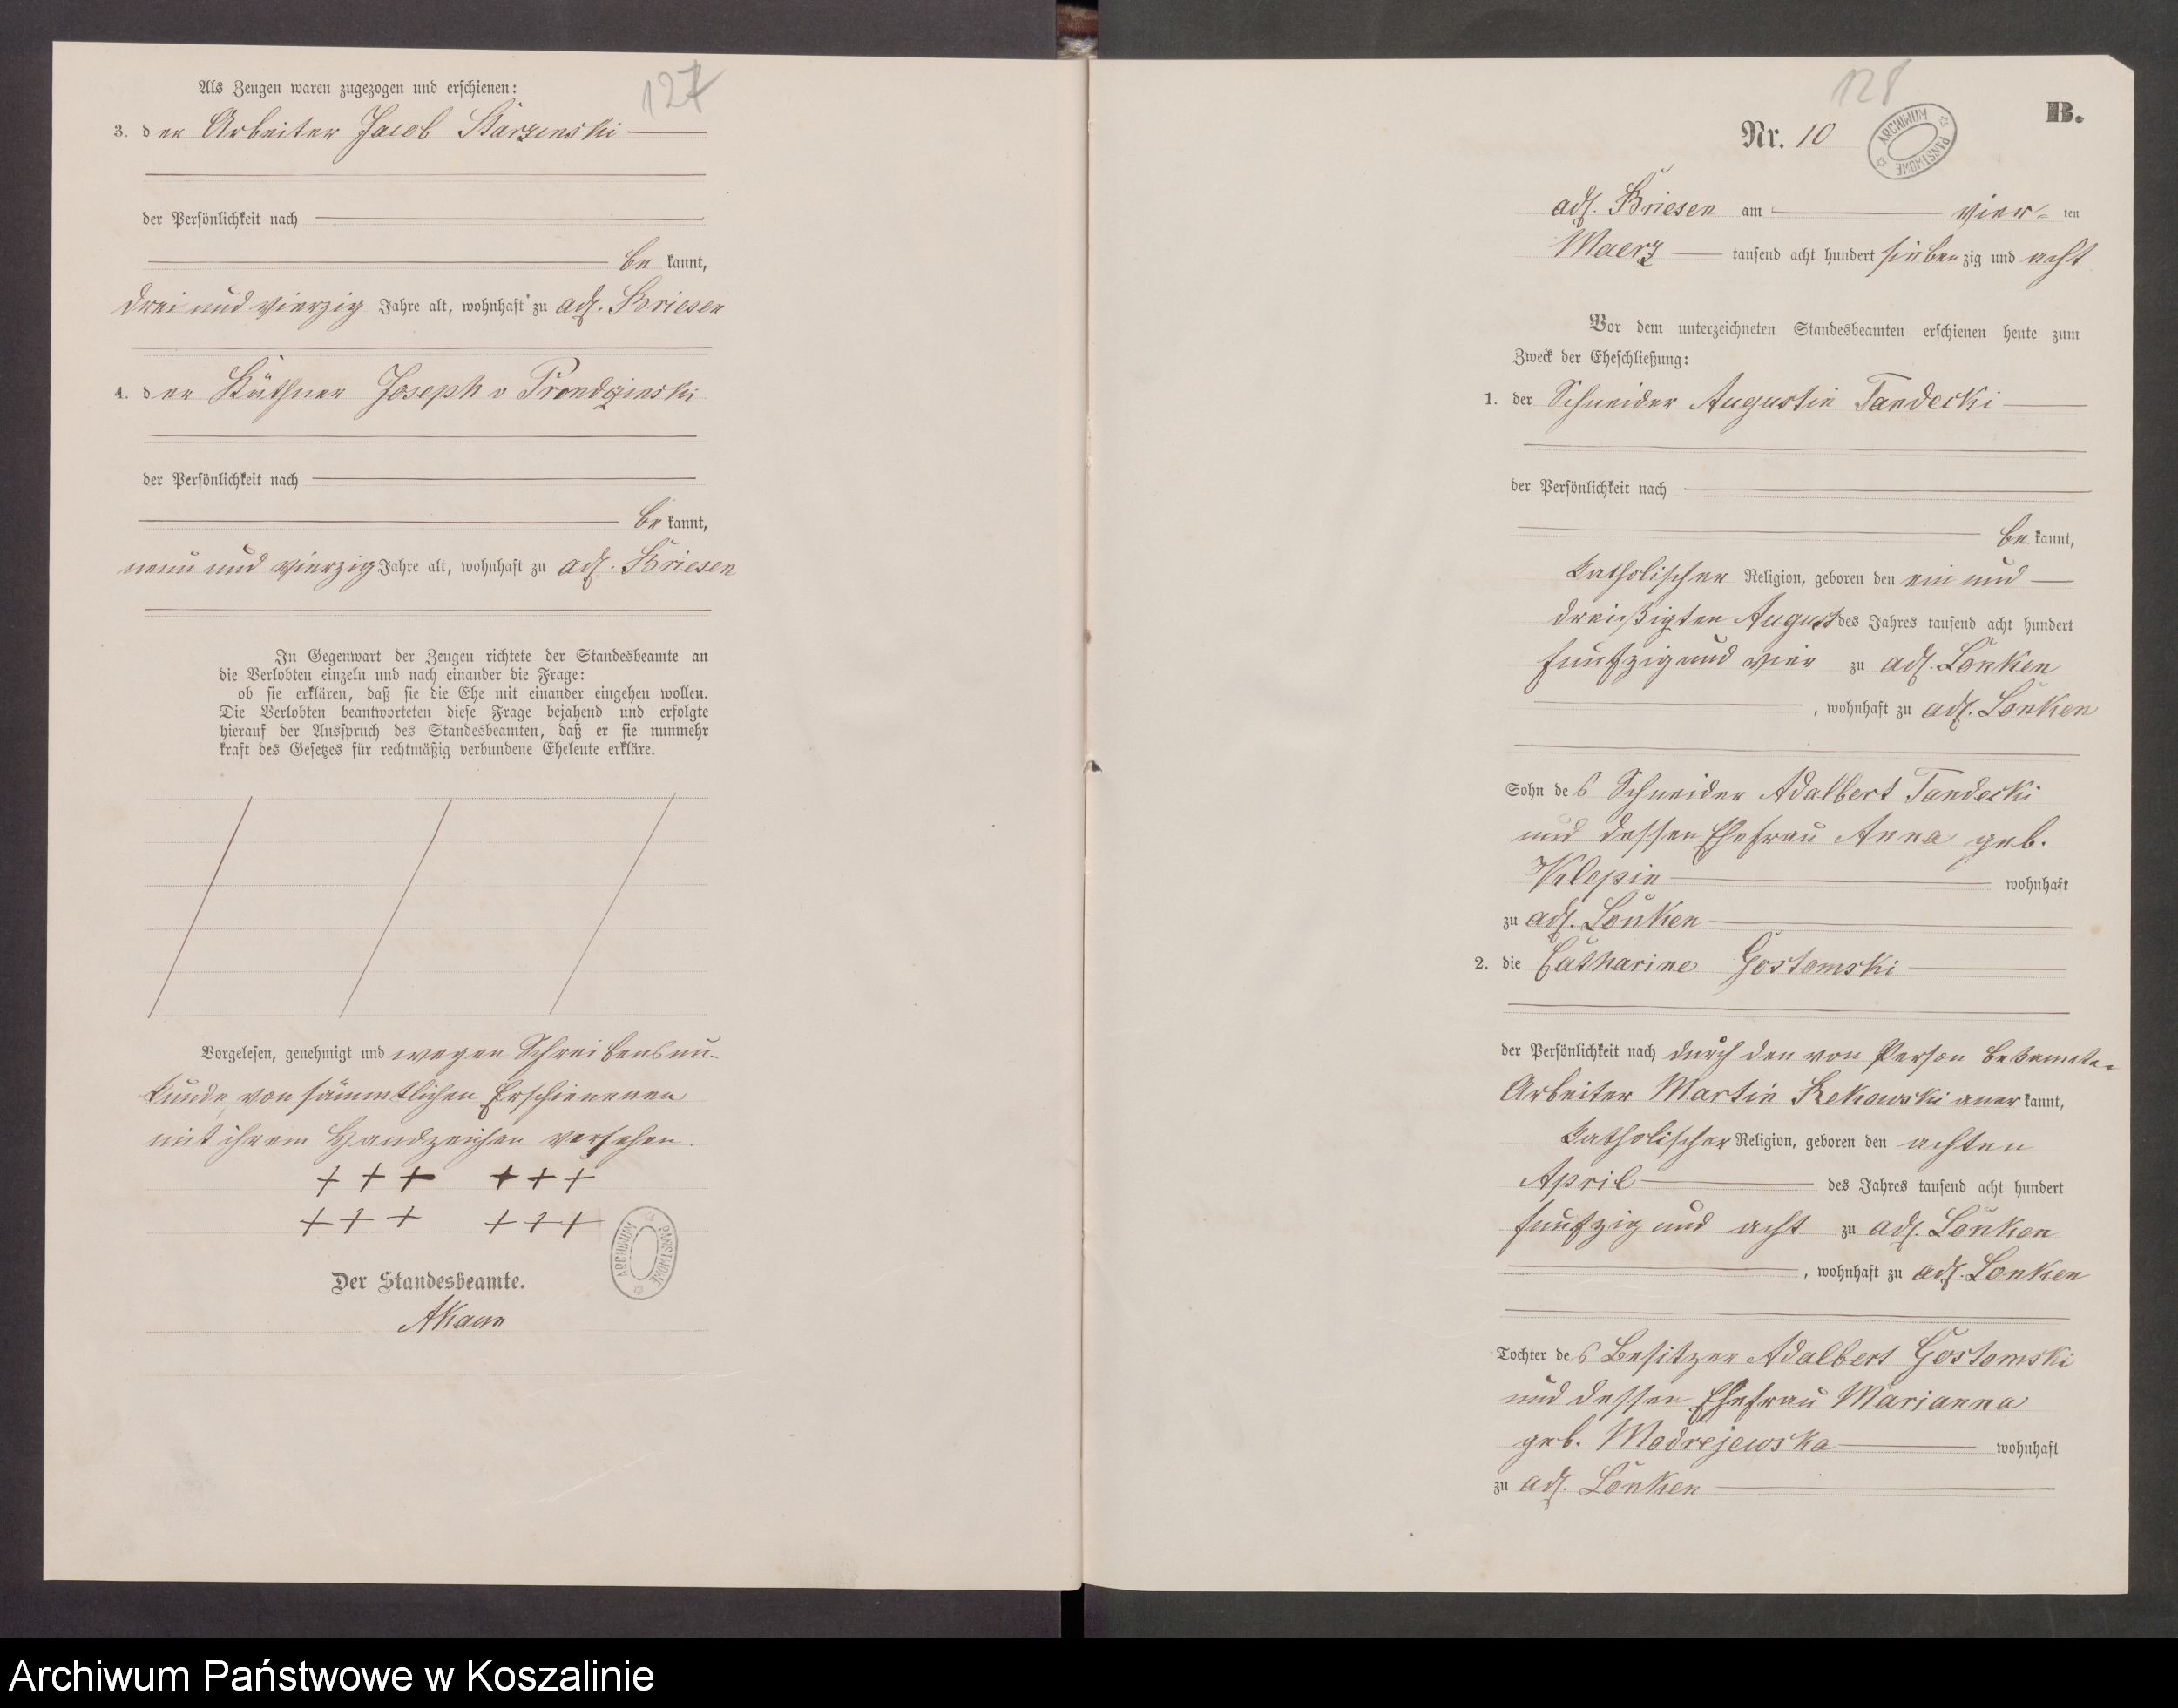 127
Als Zeugen waren zugezogen und erschienen:
3. der Arbeiter Jacob Starzinski
der Persönlichkeit nach
be kannt,
drei und vierzig Jahre alt, wohnhaft zu adl. Briesen
4. der Käthner Joseph v Prondzinski
der Persönlichkeit nach
be kannt,
neun und vierzig Jahre alt, wohnhaft zu adl. Briesen
In Gegenwart der Zeugen richtete der Standesbeamte an
die Verlobten einzeln und nach einander die Frage:
ob sie erklären, daß sie die Ehe mit einander eingehen wollen.
Die Verlobten beantworteten diese Frage bejahend und erfolgte
hierauf der Ausspruch des Standesbeamten, daß er sie nunmehr
kraft des Gesetzes für rechtmäßig verbundene Eheleute erkläre.
Vorgelesen, genehmigt und wegen Schreibensun-
kunde von sämmtlichen Erschienenen
mit ihrem Handzeichen versehen.
+ + + + + +
+ + + + + +
ARCHIWUM PAŃSTWOWE
Der Standesbeamte.
AKann
128
B.
Nr. 10
ARCHIWUM PAŃSTWOWE
adl. Briesen am vier- ten
Maerz tausend acht hundert siebenzig und acht
Vor dem unterzeichneten Standesbeamten erschienen heute zum
Zweck der Eheschließung:
1. der Schneider Augustin Tandecki
der Persönlichkeit nach
be kannt,
katholischer Religion, geboren den ein und
dreißigten August des Jahres tausend acht hundert
funfzig und vier zu adl. Lonken
, wohnhaft zu adl. Lonken
Sohn des Schneider Adalbert Tandecki
und dessen Ehefrau Anna geb.
Klepin wohnhaft
zu adl. Lonken
2. die Catharine Gostomski
der Persönlichkeit nach durch den von Person bekannten
Arbeiter Martin Rekowski aner kannt,
katholischer Religion, geboren den achten
April des Jahres tausend acht hundert
funfzig und acht zu adl. Lonken
, wohnhaft zu adl. Lonken
Tochter des Besitzer Adalbert Gostomski
und dessen Ehefrau Marianna
geb. Modrejewska wohnhaft
zu adl. Lonken
Archiwum Państwowe w Koszalinie